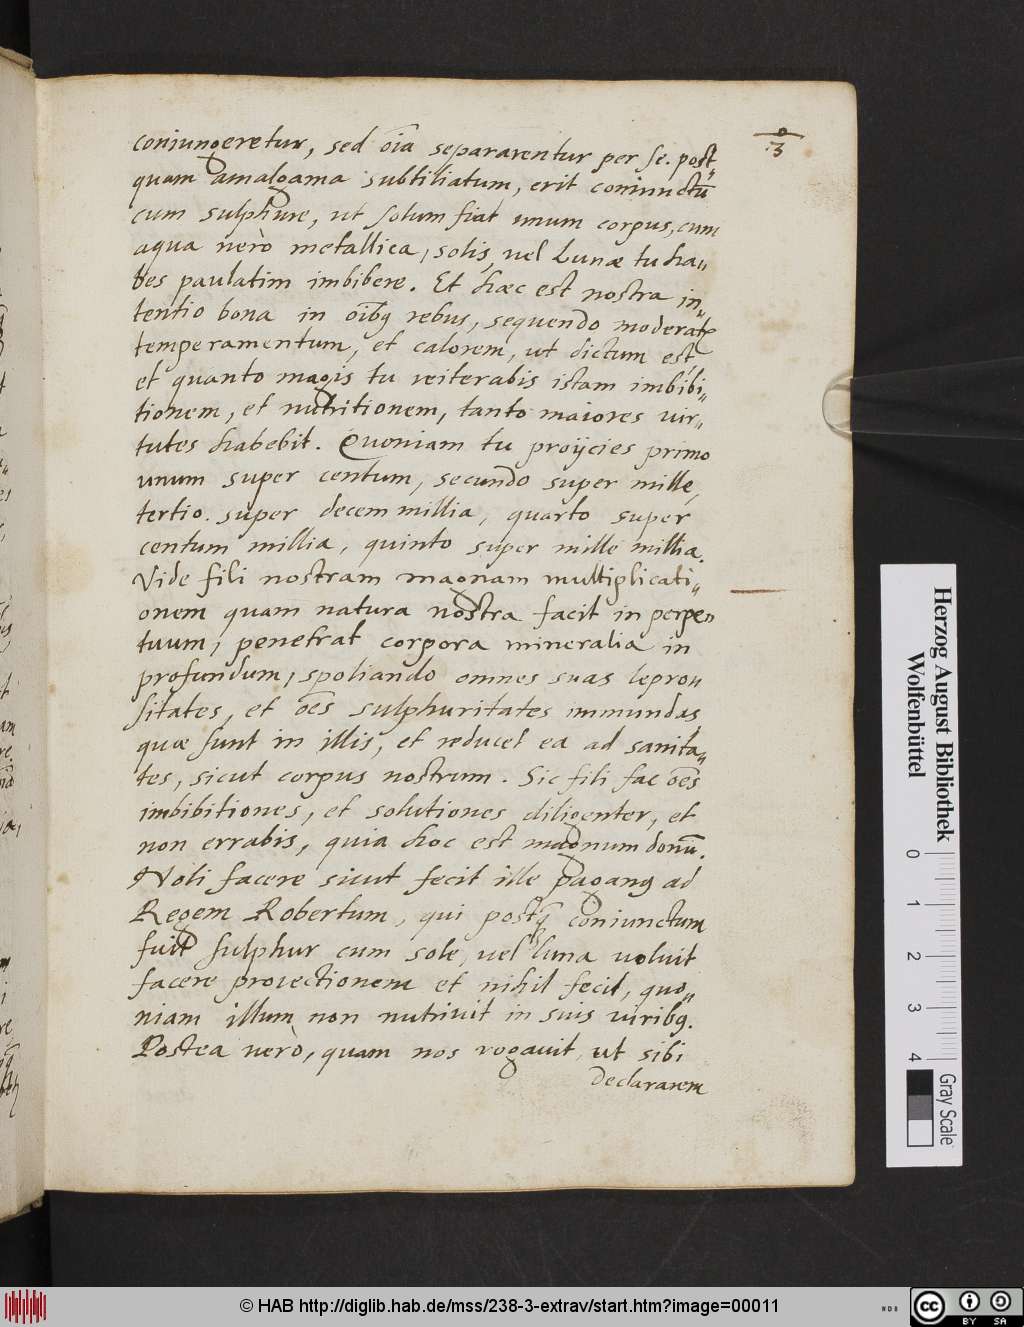 3
coniungeretur, sed oĩa separarentur per se. post„
quam amalgama subtiliatum, erit coniunctũ
cum sulphure, ut solum fiat unum corpus, cum
aqua verò metallica, solis, vel Lunæ tu ha„
bes paulatim imbibere. Et hæc est nostra in„
tentio bona in oĩbq rebus, sequendo moderatũ
temperamentum, et calorem, ut dictum est,
et quanto magis tu reiterabis istam imbibi„
tionem, et nutritionem, tanto maiores vir„
tutes habebit. Quoniam tu proijcies primo
unum super centum, secundo super mille,
tertio. super decem millia, quarto super
centum millia, quinto super mille millia.
Vide fili nostram magnam multiplicati„
onem quam natura nostra facit in perpe„
tuum, penetrat corpora mineralia in
profundum, spoliando omnes suas lepro„
sitates, et oẽs sulphuritates immundas
quæ sunt in illis, et reducet ea ad sanita„
tes, sicut corpus nostrum. Sic fili fac oẽs
imbibitiones, et solutiones diligenter, et
non errabis, quia hoc est magnum donũ.
Noli facere sicut fecit ille paganq ad
Regem Robertum, qui postq̃ coniunctum
fuit sulphur cum sole, vel luna voluit
facere proiectionem et nihil fecit, quo„
niam illum non nutrivit in suis viribq.
Postea verò, quam nos rogavit, ut sibi
declararem
Herzog August Bibliothek
Wolfenbüttel
0 1 2 3 4
Gray Scale
© HAB http://diglib.hab.de/mss/238-3-extrav/start.htm?image=00011
NDB
cc BY SA